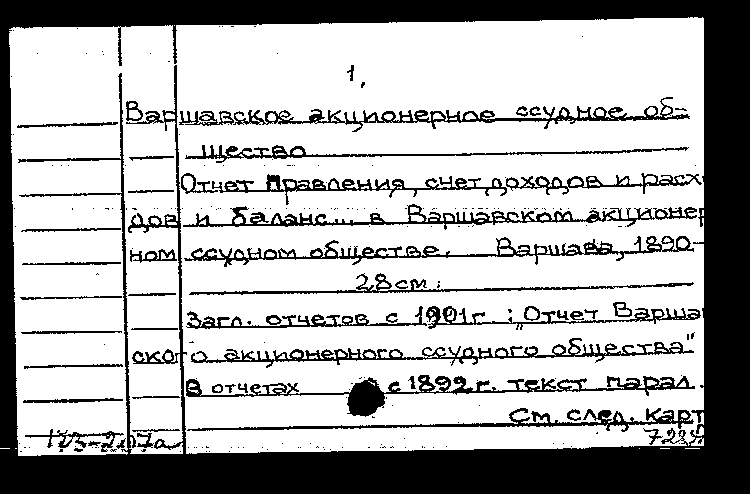 1.
Варшавское акционерное ссудное об-
щество
Отчет Правления, счет доходов и расхо
дов и баланс... в Варшавском акционер
ном ссудном обществе. Варшава, 1890-
28 см.
Загл. отчетов с 1901 г.: "Отчет Варшав
ского акционерного ссудного общества"
В отчетах с 1892 г. текст парал.
См. след. карт